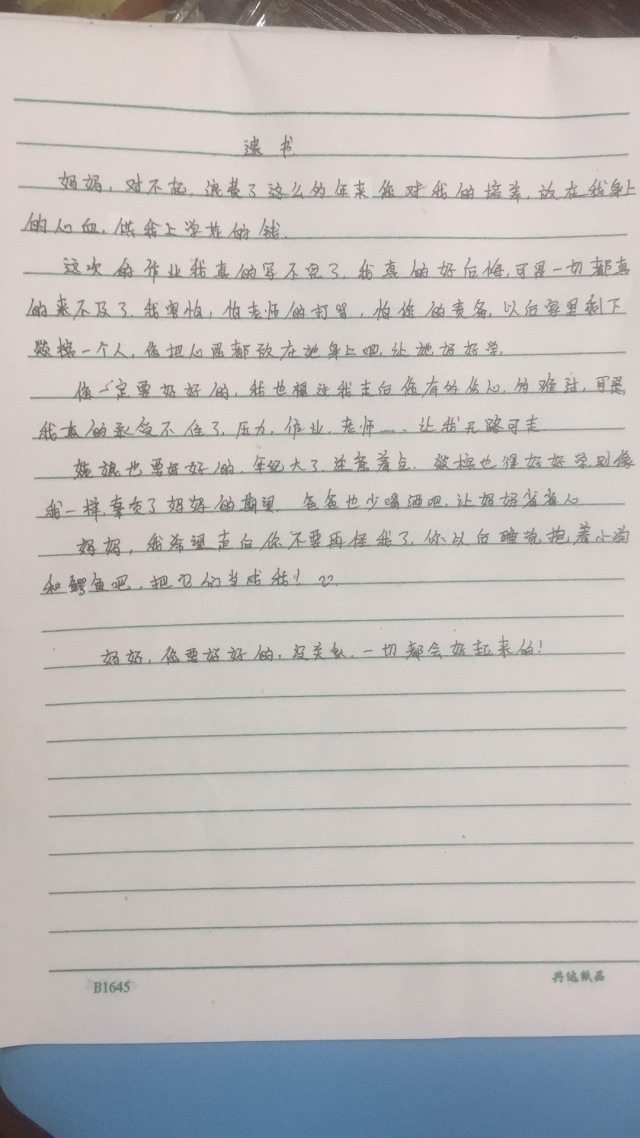 遗书
妈妈，对不起，浪费了这么多年来您对我的培养，放在我身上
的心血，供我上学花的钱。
这次的作业我真的写不完了，我真的好后悔，可是一切都真
的来不及了，我害怕，怕老师的打骂，怕你的责备，以后家里剩下
一个人，您把心思都放在她身上吧，让她好好学。
您一定要好好的，我也想过我走后您有多伤心，多难过，可是
我真的承受不住了，压力，作业，老师……让我无路可走
也要好好的，年纪大了，注意着点，也得好好学别像
我一样，辜负了妈妈的期望，爸爸也少喝酒吧，让妈妈省省心
妈妈，我希望走后你不要再怪我了，你以后睡觉抱着小狗
和鳄鱼吧，把它们当成我！
妈妈，您要好好的，没关系，一切都会好起来的！
B1645
兴达纸品